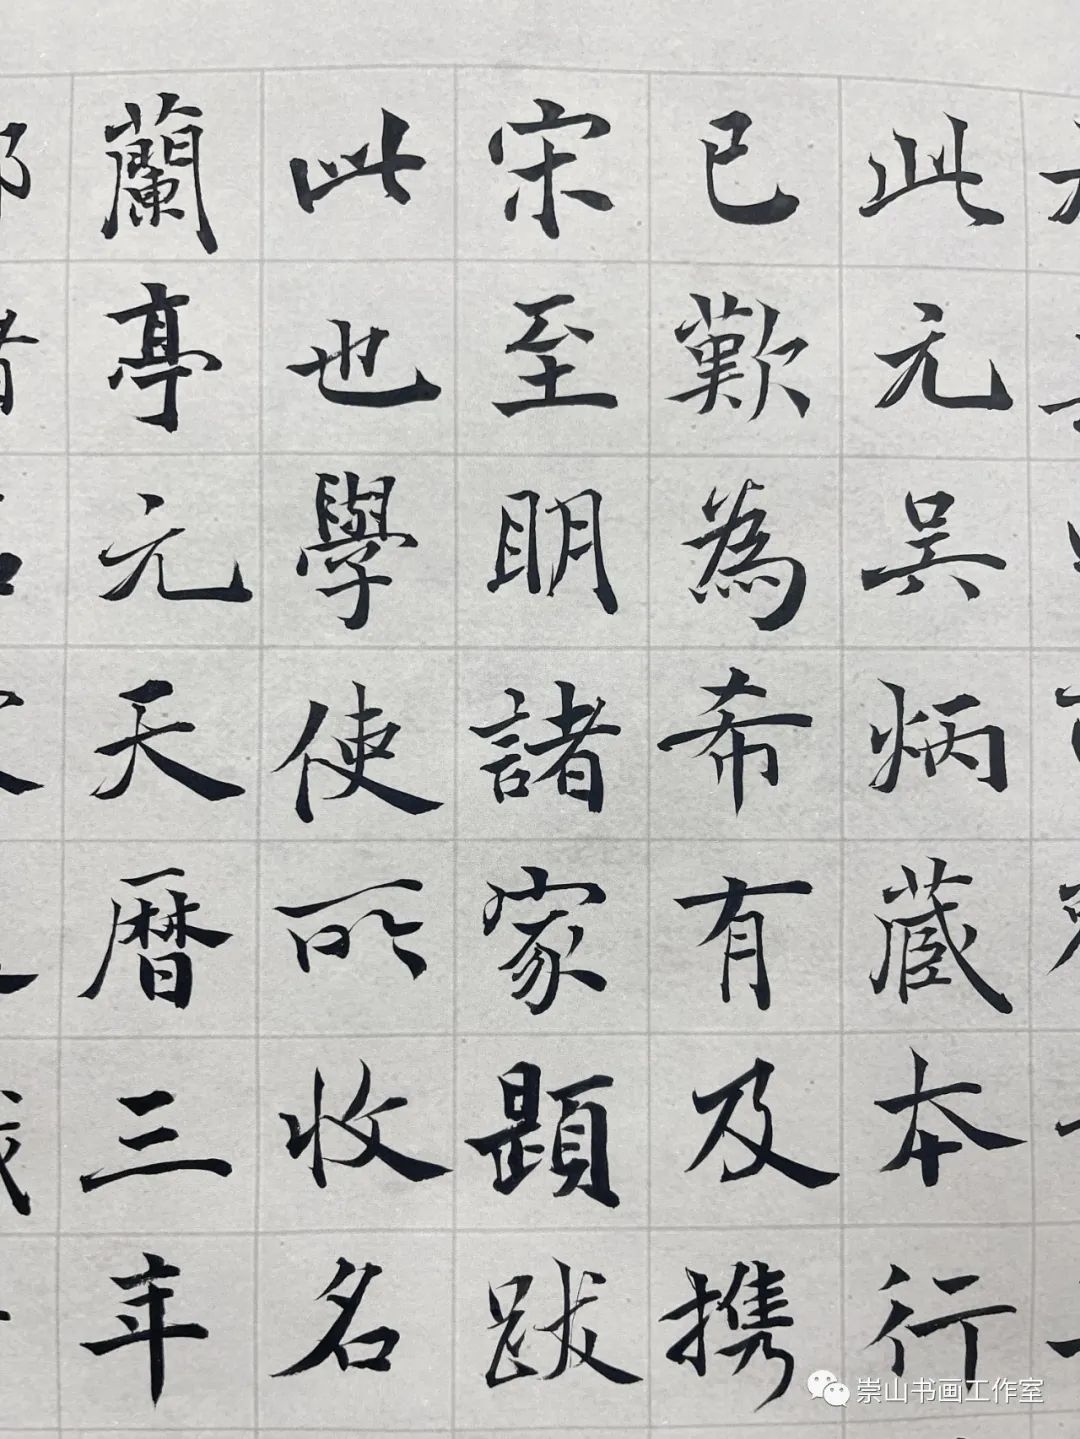 此元吴炳蔵本行
已歎為希有及携
宋至明諸家題跋
此也學使所收名
蘭亭元天暦三年
崇山书画工作室